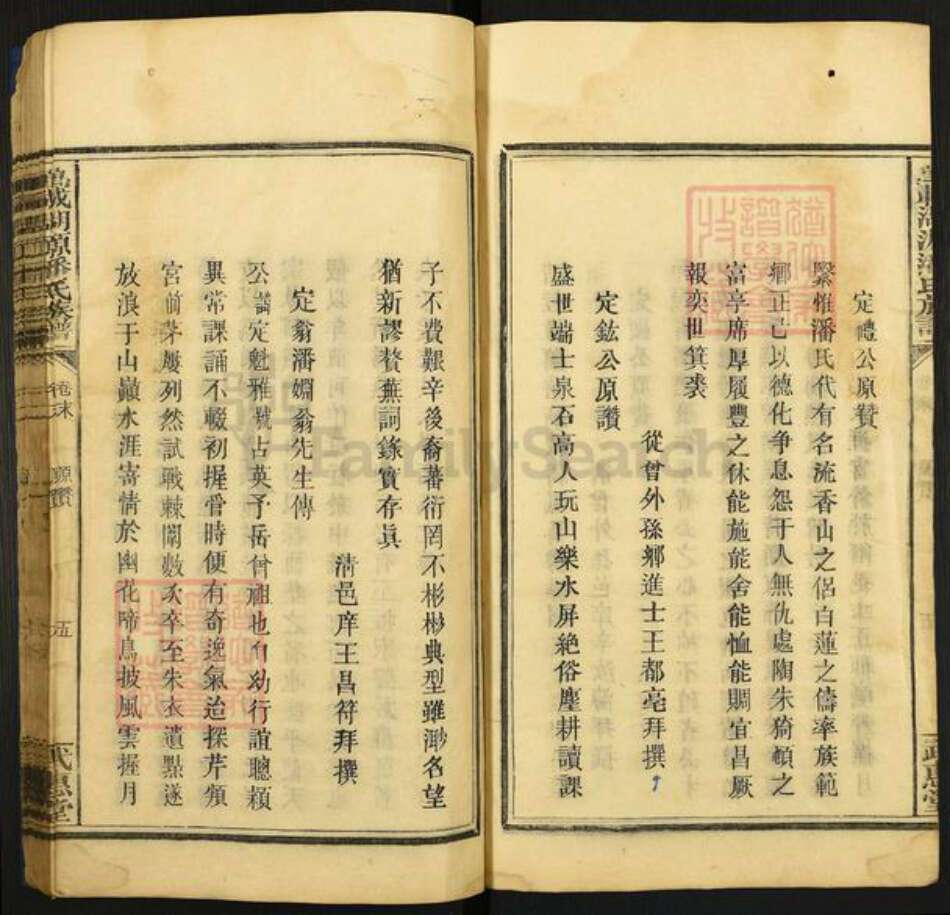 定禮公原贊
繄惟潘氏代有名流香山之侶白蓮之儔率族範
鄉正己以德化爭息怨于人無仇處陶朱猗頓之
富享席厚履豐之休能施能舍能恤能賙宜昌厥
報奕世箕裘
從曾外孫鄉進士王都亮拜撰
定鈜公原讚
盛世端士泉石高人玩山樂水屏絕俗塵耕讀課
子不費艱辛後裔蕃衍罔不彬彬典型雖渺名望
猶新謬贅蕪詞錄實存眞
清邑庠王昌符拜撰
定翁潘嫺翁先生傳
公諱定魁雅號占英予岳曾祖也自幼行誼聰穎
異常課誦不輟初握管時便有奇逸氣迨探芹頖
宮前茅屢列然試戰棘闈數次卒至朱衣遺點遂
放浪于山巔水涯寄情於幽花啼鳥披風雲握月
萬載湖源潘氏族譜
卷末
原讚
五
式惠堂
FamilySearch